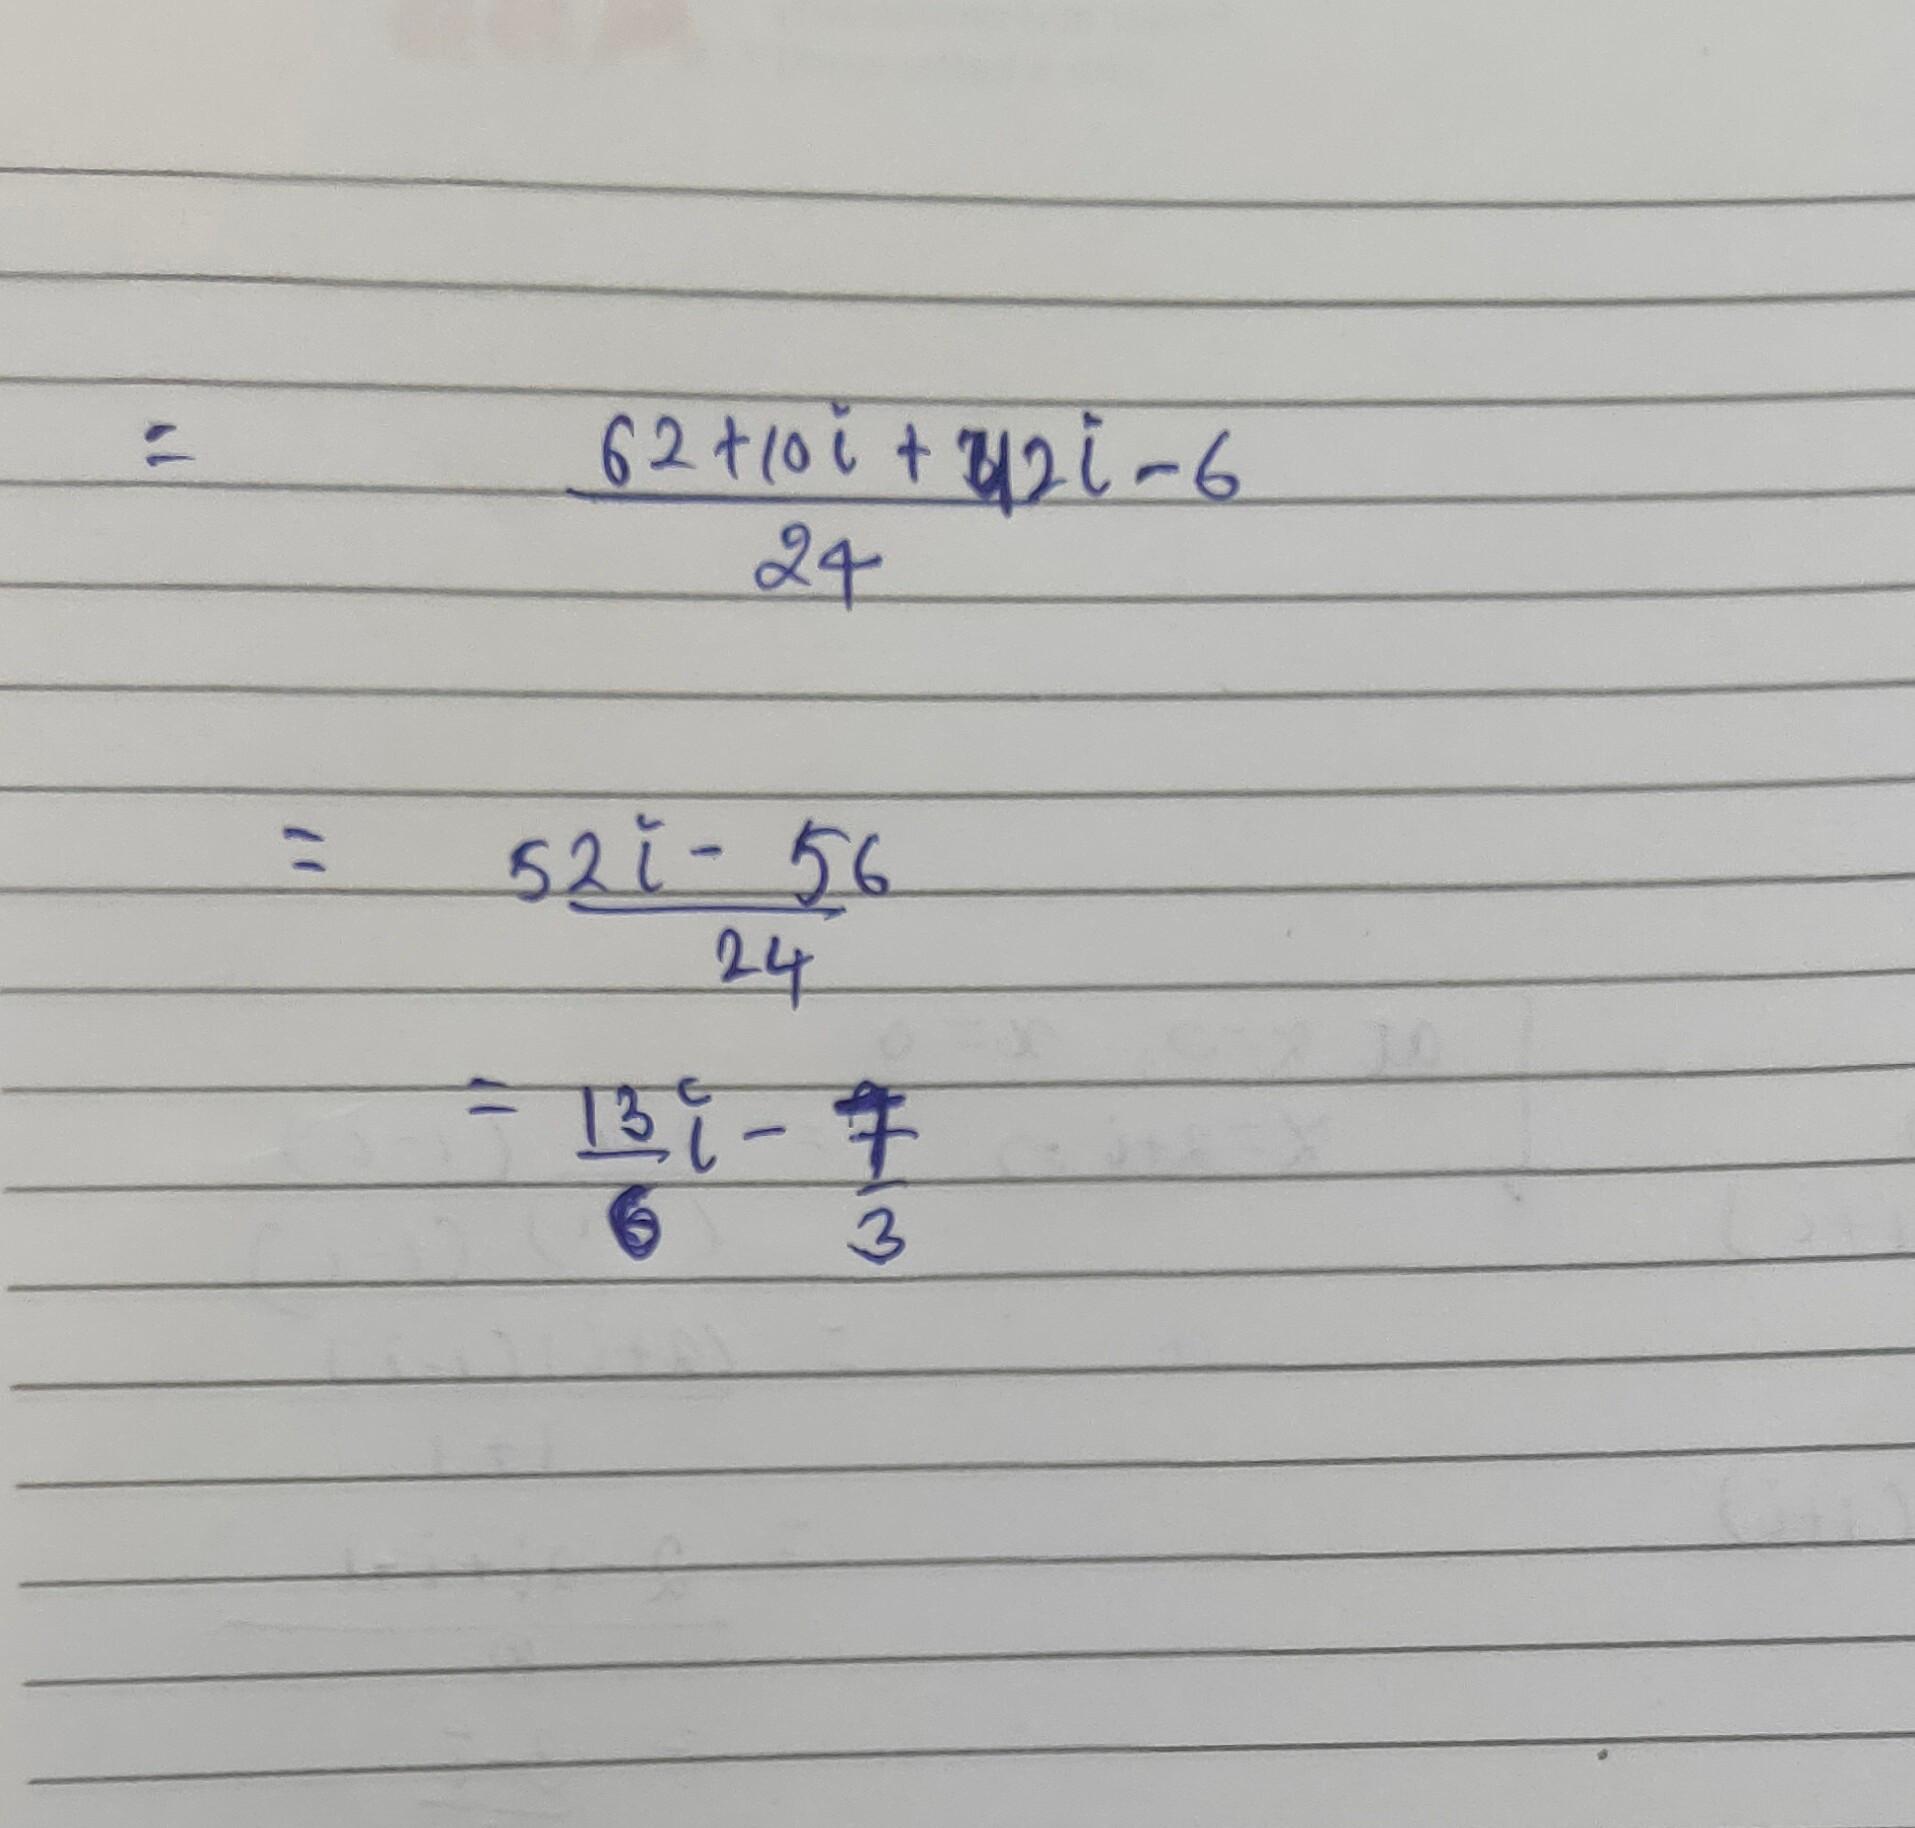 = 62+10i + 42i - 6
24
= 52i - 56
24
= 13/6 i - 7/3